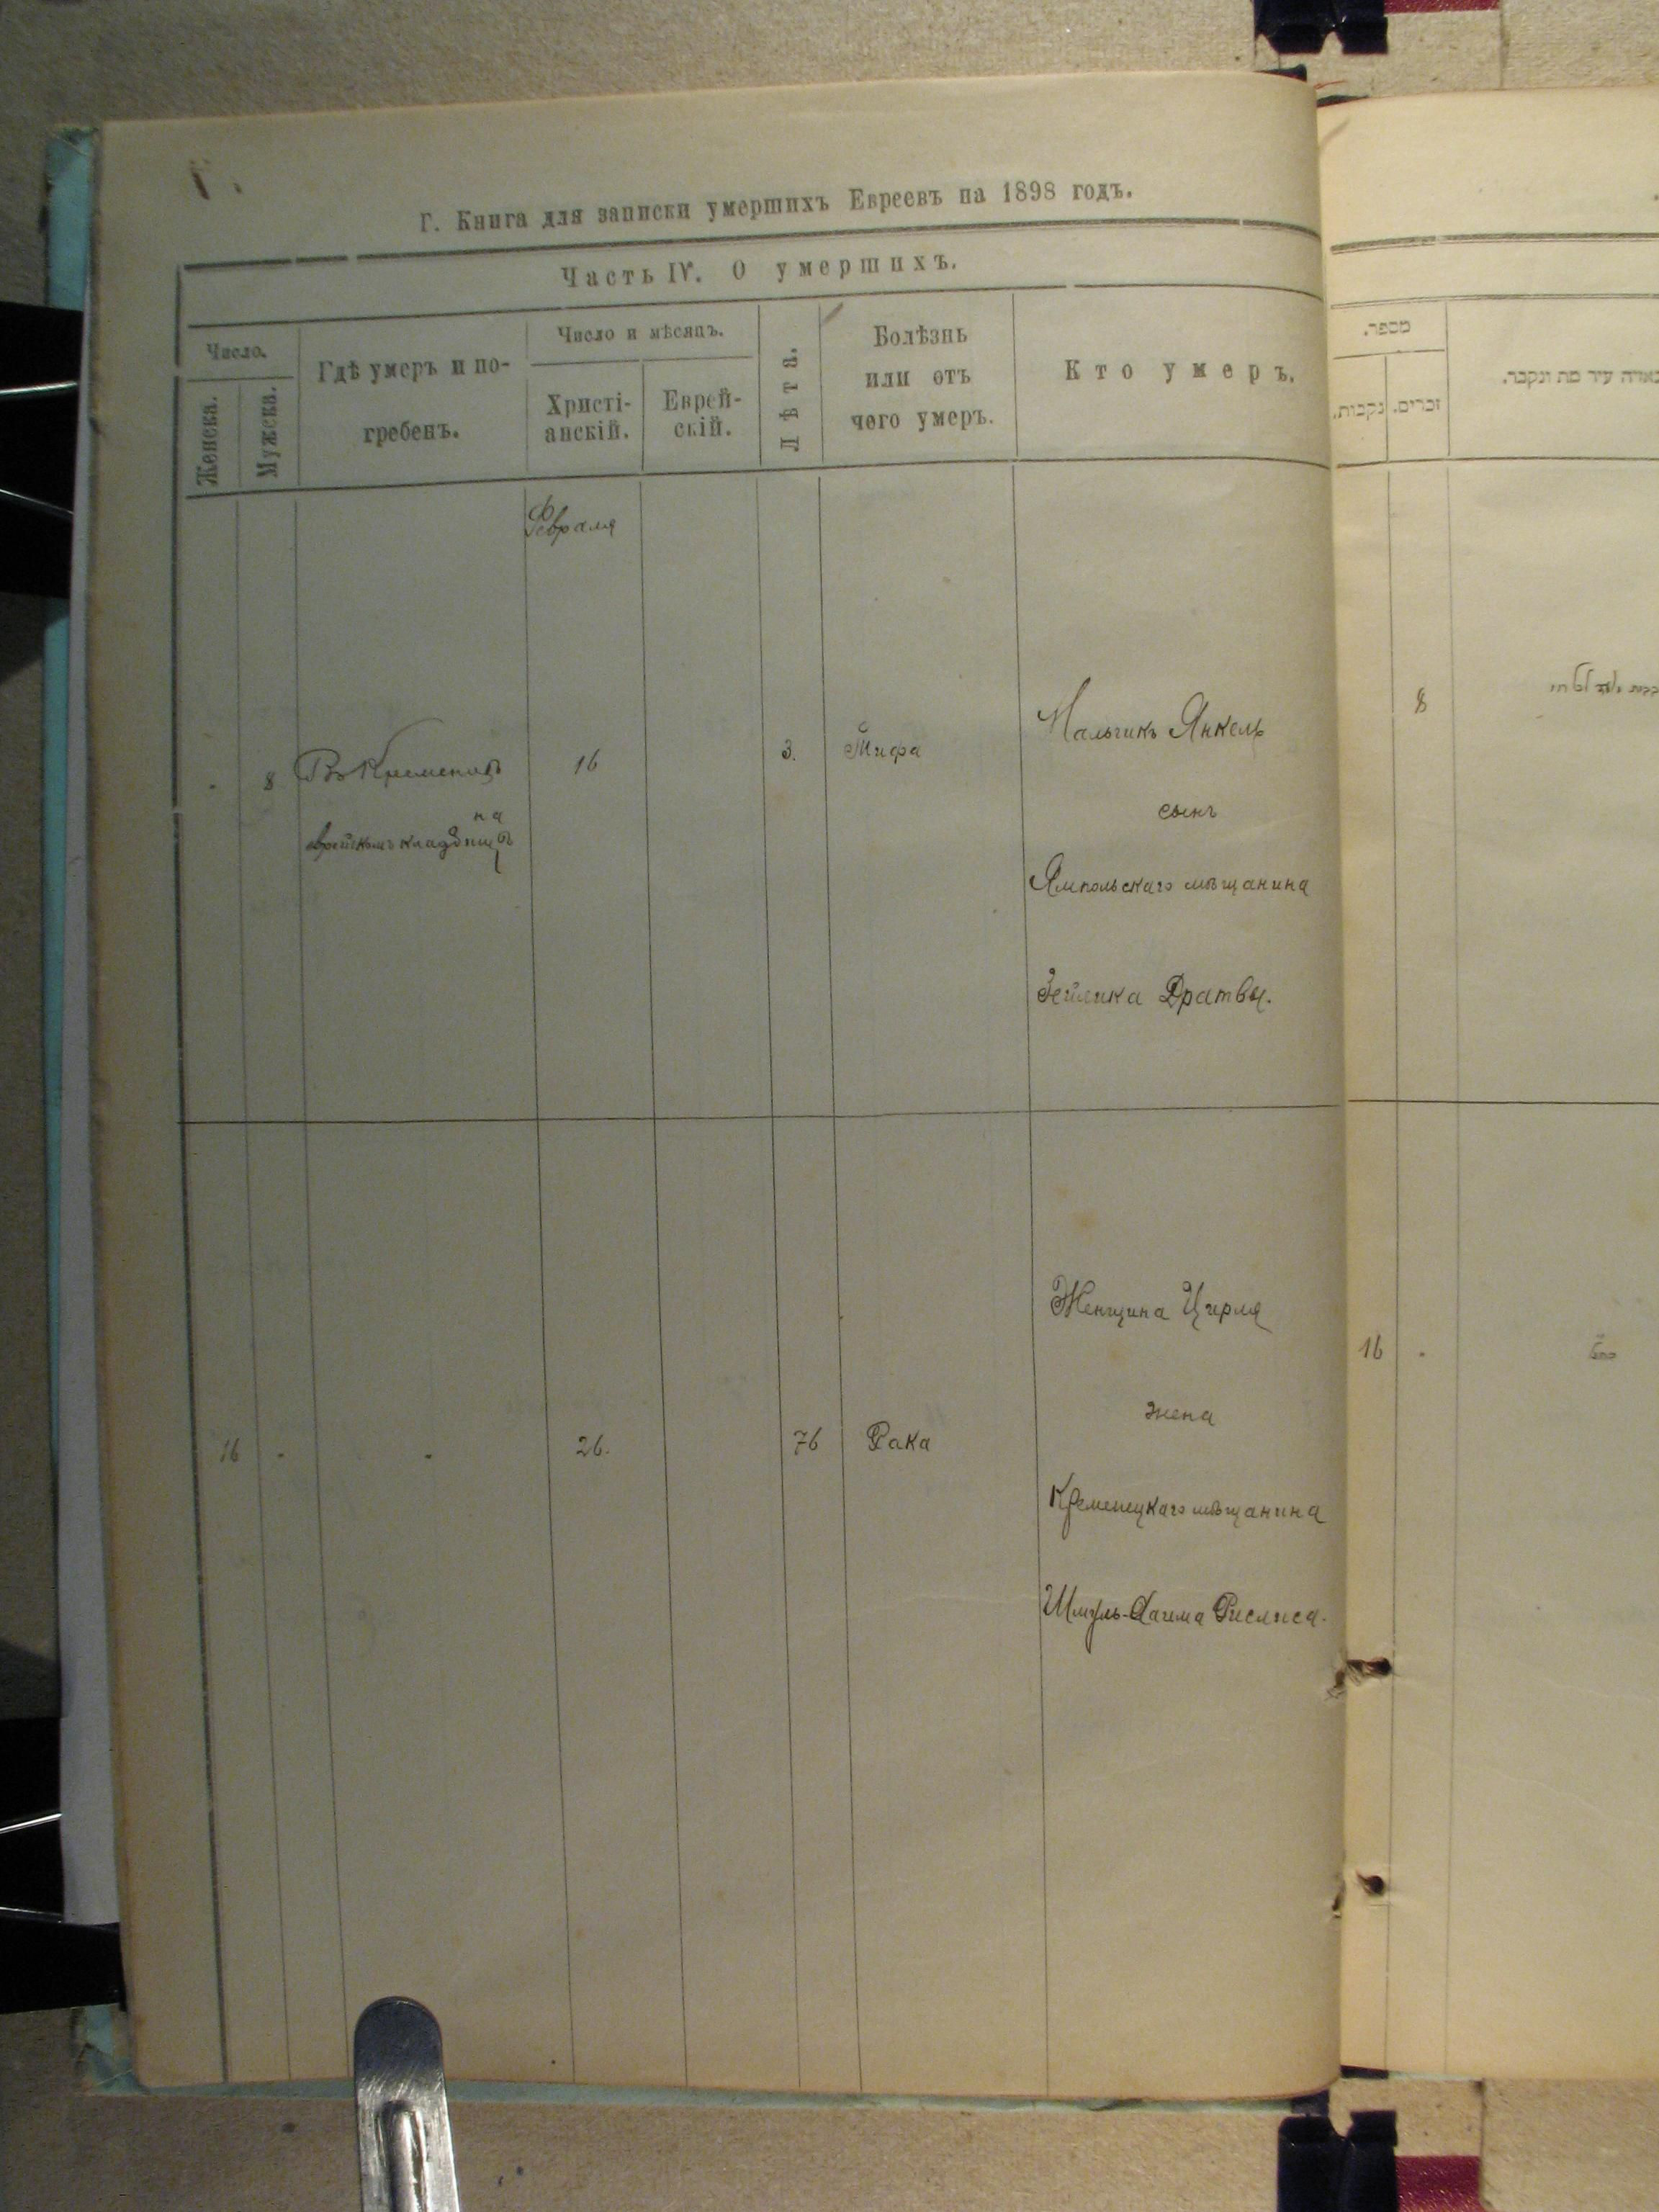 Г. Книга для записки умершихъ Евреевъ на 1898 годъ.
Часть IV. О умершихъ.
Число.
Женска.
Мужска.
Гдѣ умеръ и по-
гребенъ.
Число и мѣсяцъ.
Христі-
анскій.
Еврей-
скій.
Лѣта.
Болѣзнь
или отъ
чего умеръ.
Кто умеръ.
Февраля
8
Въ Кременцѣ
на
еврейскомъ кладбищѣ
16
3.
Тифа
Мальчикъ Янкель
сынъ
Ямпольскаго мѣщанина
Зейлика Дратвы.
16
26.
76
Рака
Женщина Цирля
жена
Кременецкаго мѣщанина
Шмуль-Хаима Рислиса.
מספר.
נקבות.
זכרים.
עיר מת ונקבר.
8
16